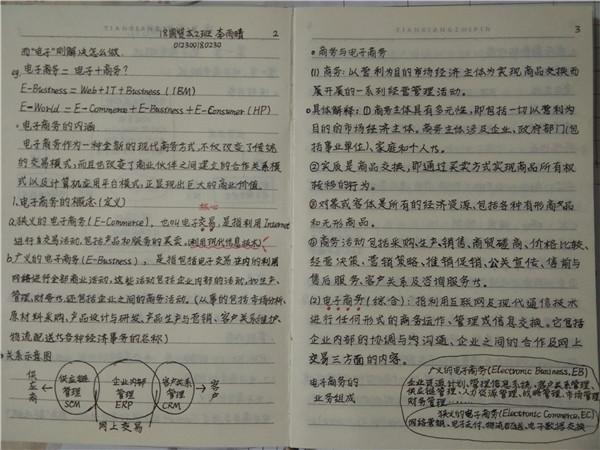 18国贸本2班 李雨晴
012300180230
2
而"电子"则解决怎么做.
eg. 电子商务 = 电子 + 商务?
E-Business = Web + IT + Business (IBM)
E-World = E-Commerce + E-Business + E-Consumer (HP)
·电子商务的内涵
电子商务作为一种全新的现代商务方式,不仅改变了传统
的交易模式,而且也改变了商业伙伴之间建立的合作关系模
式以及计算机应用平台模式,正显现出巨大的商业价值.
1.电子商务的概念(定义)
核心
a.狭义的电子商务(E-Commerce),也叫电子交易,是指利用Internet
进行交易活动,包括产品和服务的买卖,(利用现代信息技术)
b.广义的电子商务(E-Business),是指包括电子交易在内的利用
网络进行全部商业活动,这些活动包括企业内部的活动,如生产、
管理、财务等,还包括企业之间的商务活动。(从事的包括市场分析、
原材料采购、产品设计与研发、产品生产与营销、客户关系维护、
物流配送等各种经济事务的总称)
关系示意图
供应商
供应链管理 SCM
企业内部管理 ERP
客户关系管理 CRM
客户
网上交易
3
商务与电子商务
(1) 商务:以营利为目的市场经济主体为实现商品交换而
展开展的一系列经营管理活动。
具体解释:①商务主体具有多元性,即包括一切以营利为
目的的市场经济主体。商务主体涉及企业、政府部门(包
括事业单位)、家庭和个人等。
②实质是商品交换,即通过买卖方式实现商品所有权
转移的行为。
③对象或客体是所有的经济资源,包括各种有形商品
和无形商品。
④商务活动包括采购、生产、销售、商贸磋商、价格比较、
经营决策、营销策略、推销促销、公关宣传、售前与
售后服务、客户关系及咨询服务等。
(2)电子商务(综合):指利用互联网及现代通信技术
进行任何形式的商务运作、管理或信息交换。它包括
企业内部的协调与沟通、企业之间的合作及网上
交易三方面的内容。
电子商务的
业务组成
广义的电子商务(Electronic Business, EB)
企业资源计划、管理信息系统、客户关系管理、
供应链管理、人力资源管理、战略管理、市场管理
财务管理……
狭义的电子商务(Electronic Commerce, EC)
网络营销、电子支付、物流配送、电子数据交换